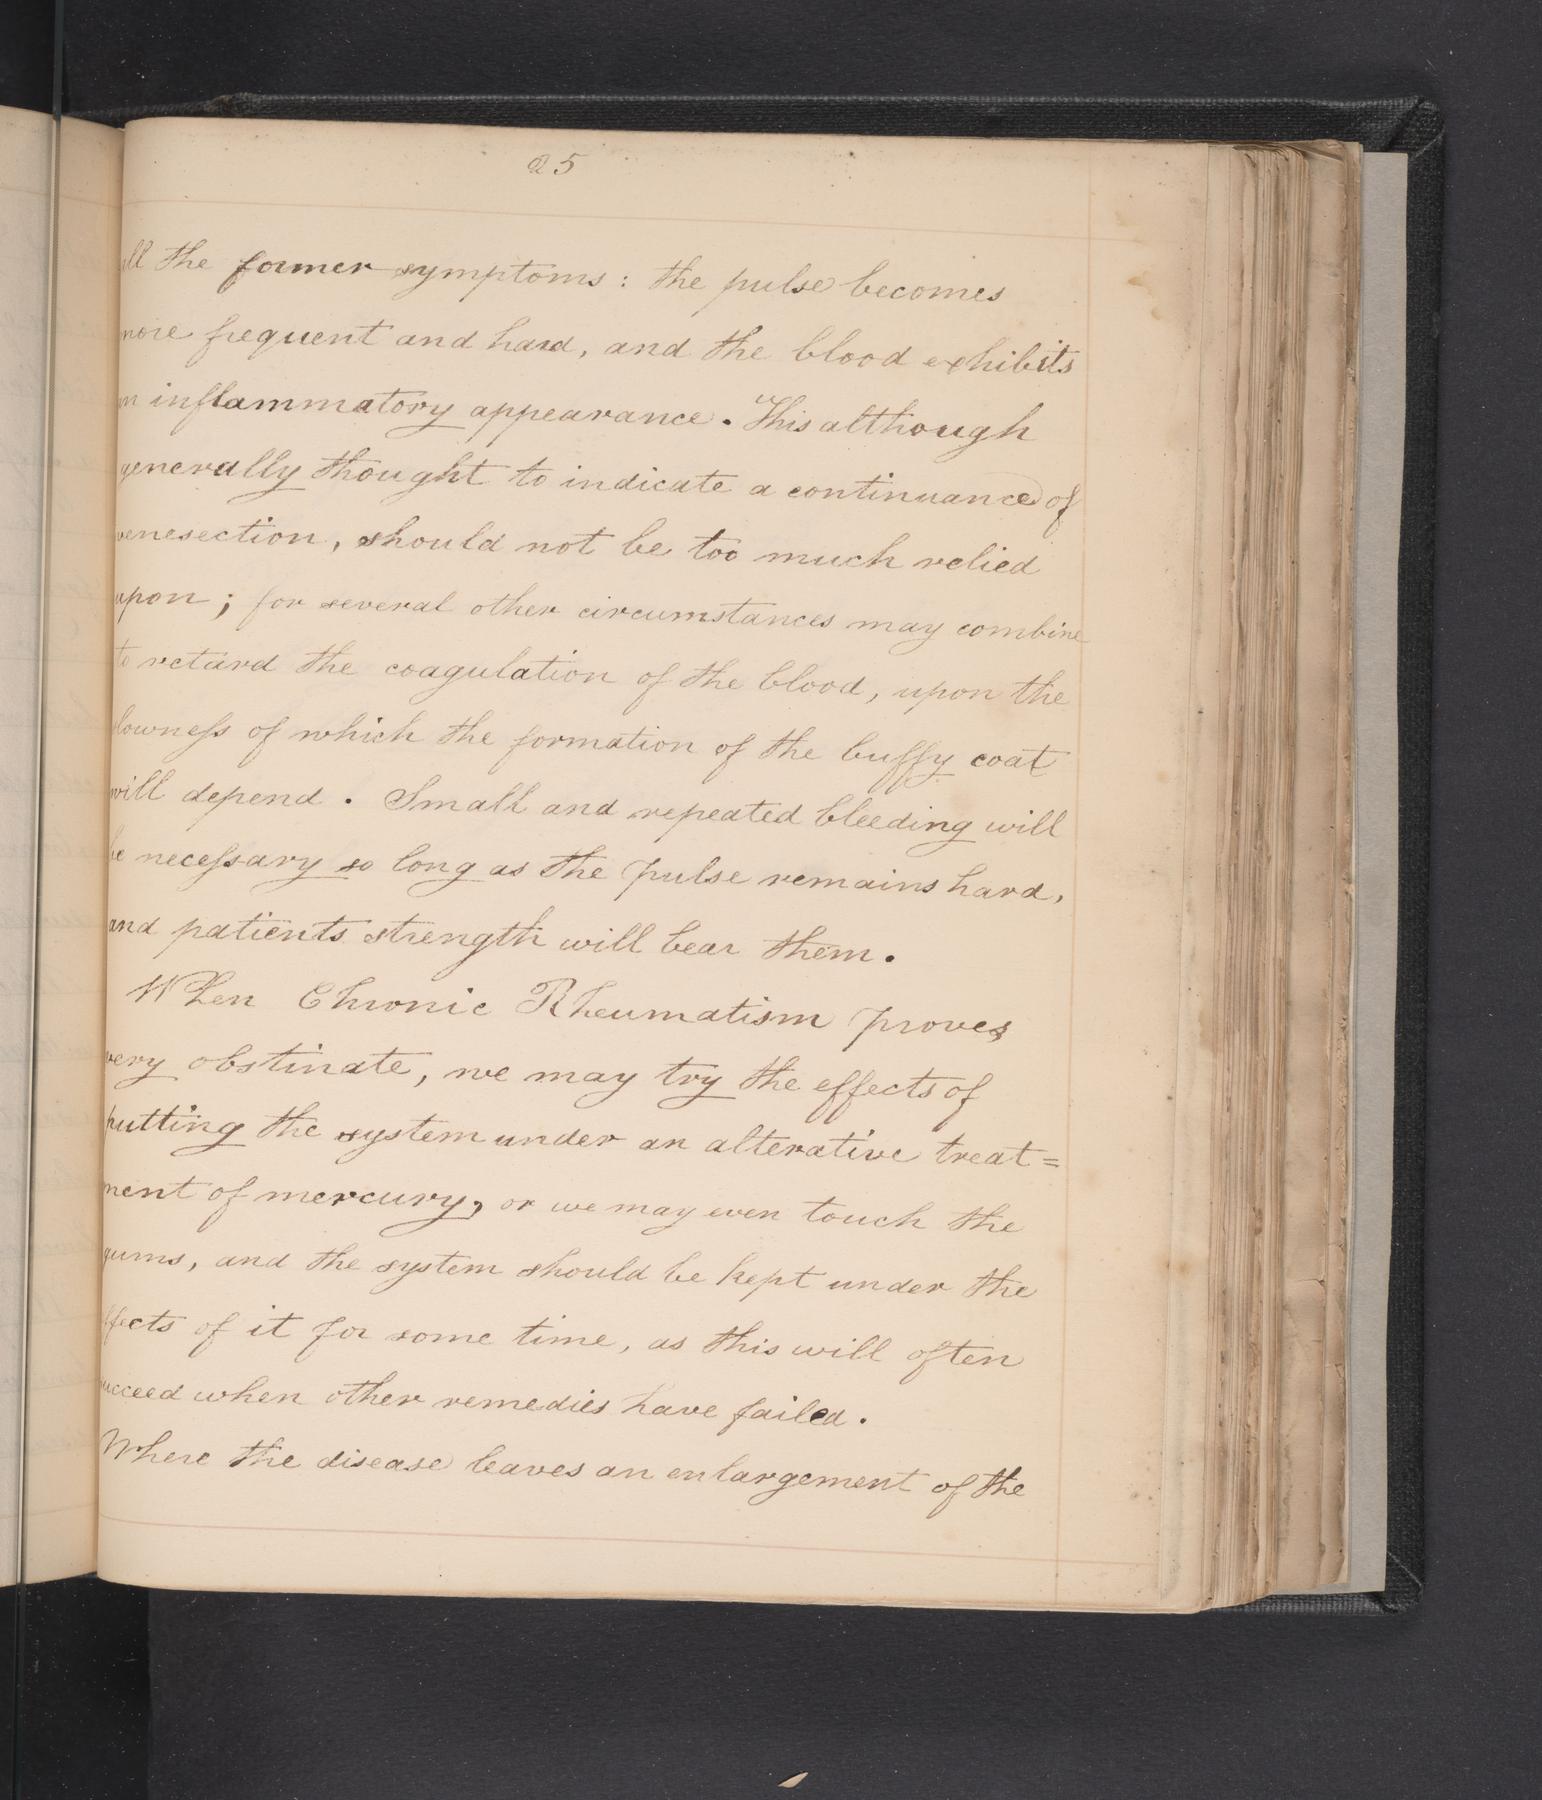 25
all the former symptoms: the pulse becomes
more frequent and hard, and the blood exhibits
an inflammatory appearance. This although
generally thought to indicate a continuance of
venesection, should not be too much relied
upon; for several other circumstances may combine
to retard the coagulation of the blood, upon the
slowness of which the formation of the buffy coat
will depend. Small and repeated bleeding will
be necessary so long as the pulse remains hard,
and patients strength will bear them.
When Chronic Rheumatism proves
very obstinate, we may try the effects of
putting the system under an alterative treat=
ment of mercury, or we may even touch the
gums, and the system should be kept under the
effects of it for some time, as this will often
succeed when other remedies have failed.
Where the disease leaves an enlargement of the